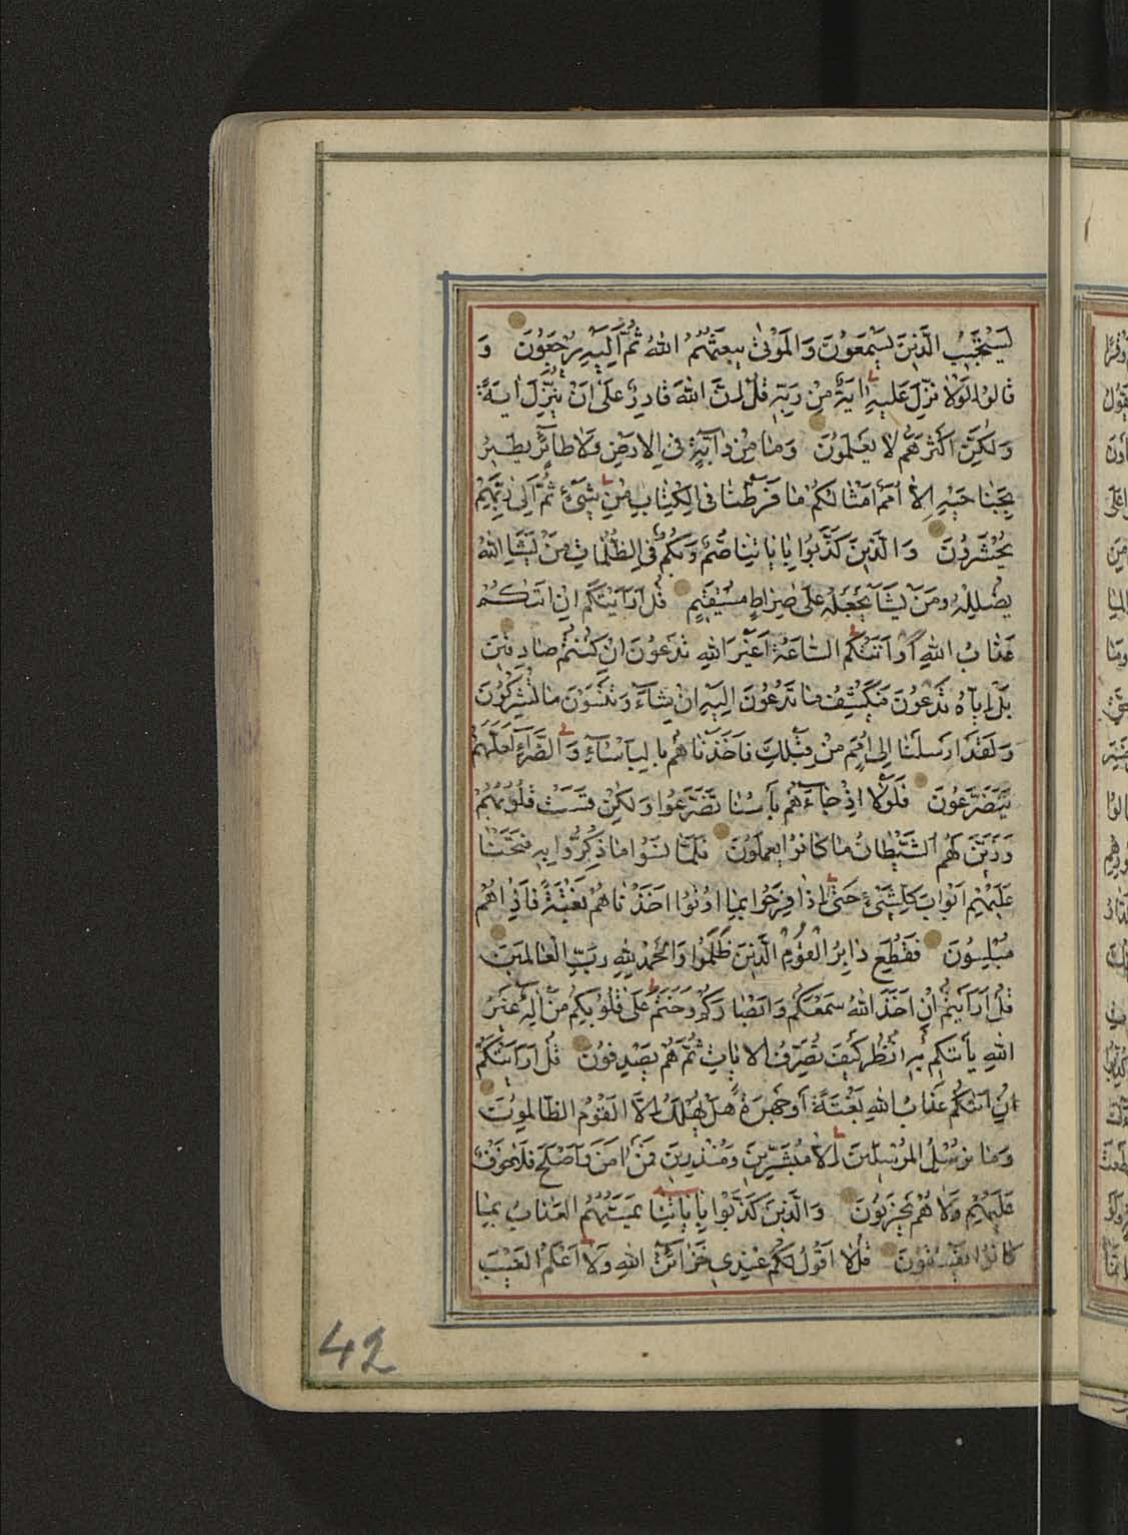 يَسْتَجِيبُ الَّذِينَ يَسْمَعُونَ وَالْمَوْتَىٰ يَبْعَثُهُمُ اللَّهُ ثُمَّ إِلَيْهِ يُرْجَعُونَ وَ
قَالُوا لَوْلَا نُزِّلَ عَلَيْهِ آيَةٌ مِنْ رَبِّهِ قُلْ إِنَّ اللَّهَ قَادِرٌ عَلَىٰ أَنْ يُنَزِّلَ آيَةً
وَلَكِنَّ أَكْثَرَهُمْ لَا يَعْلَمُونَ وَمَا مِنْ دَابَّةٍ فِي الْأَرْضِ وَلَا طَائِرٍ يَطِيرُ
بِجَنَاحَيْهِ إِلَّا أُمَمٌ أَمْثَالُكُمْ مَا فَرَّطْنَا فِي الْكِتَابِ مِنْ شَيْءٍ ثُمَّ إِلَىٰ رَبِّهِمْ
يُحْشَرُونَ وَالَّذِينَ كَذَّبُوا بِآيَاتِنَا صُمٌّ وَبُكْمٌ فِي الظُّلُمَاتِ مَنْ يَشَإِ اللَّهُ
يُضْلِلْهُ وَمَنْ يَشَأْ يَجْعَلْهُ عَلَىٰ صِرَاطٍ مُسْتَقِيمٍ قُلْ أَرَأَيْتَكُمْ إِنْ أَتَاكُمْ
عَذَابُ اللَّهِ أَوْ أَتَتْكُمُ السَّاعَةُ أَغَيْرَ اللَّهِ تَدْعُونَ إِنْ كُنْتُمْ صَادِقِينَ
بَلْ إِيَّاهُ تَدْعُونَ فَيَكْشِفُ مَا تَدْعُونَ إِلَيْهِ إِنْ شَاءَ وَتَنْسَوْنَ مَا تُشْرِكُونَ
وَلَقَدْ أَرْسَلْنَا إِلَىٰ أُمَمٍ مِنْ قَبْلِكَ فَأَخَذْنَاهُمْ بِالْبَأْسَاءِ وَالضَّرَّاءِ لَعَلَّهُمْ
يَتَضَرَّعُونَ فَلَوْلَا إِذْ جَاءَهُمْ بَأْسُنَا تَضَرَّعُوا وَلَكِنْ قَسَتْ قُلُوبُهُمْ
وَزَيَّنَ لَهُمُ الشَّيْطَانُ مَا كَانُوا يَعْمَلُونَ فَلَمَّا نَسُوا مَا ذُكِّرُوا بِهِ فَتَحْنَا
عَلَيْهِمْ أَبْوَابَ كُلِّ شَيْءٍ حَتَّىٰ إِذَا فَرِحُوا بِمَا أُوتُوا أَخَذْنَاهُمْ بَغْتَةً فَإِذَا هُمْ
مُبْلِسُونَ فَقُطِعَ دَابِرُ الْقَوْمِ الَّذِينَ ظَلَمُوا وَالْحَمْدُ لِلَّهِ رَبِّ الْعَالَمِينَ
قُلْ أَرَأَيْتُمْ إِنْ أَخَذَ اللَّهُ سَمْعَكُمْ وَأَبْصَارَكُمْ وَخَتَمَ عَلَىٰ قُلُوبِكُمْ مَنْ إِلَهٌ غَيْرُ
اللَّهِ يَأْتِيكُمْ بِهِ انْظُرْ كَيْفَ نُصَرِّفُ الْآيَاتِ ثُمَّ هُمْ يَصْدِفُونَ قُلْ أَرَأَيْتَكُمْ
إِنْ أَتَاكُمْ عَذَابُ اللَّهِ بَغْتَةً أَوْ جَهْرَةً هَلْ يُهْلَكُ إِلَّا الْقَوْمُ الظَّالِمُونَ
وَمَا نُرْسِلُ الْمُرْسَلِينَ إِلَّا مُبَشِّرِينَ وَمُنْذِرِينَ فَمَنْ آمَنَ وَأَصْلَحَ فَلَا خَوْفٌ
عَلَيْهِمْ وَلَا هُمْ يَحْزَنُونَ وَالَّذِينَ كَذَّبُوا بِآيَاتِنَا يَمَسُّهُمُ الْعَذَابُ بِمَا
كَانُوا يَفْسُقُونَ قُلْ لَا أَقُولُ لَكُمْ عِنْدِي خَزَائِنُ اللَّهِ وَلَا أَعْلَمُ الْغَيْبَ
42